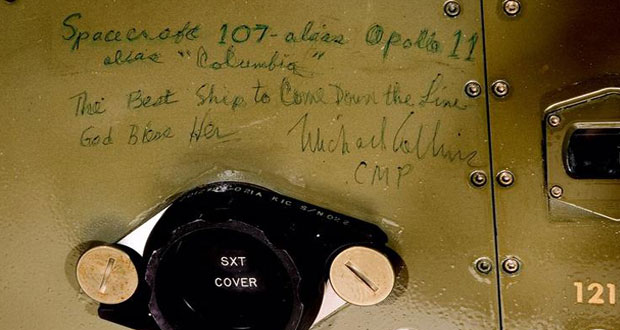 Spacecraft 107 - alias Apollo 11
alias "Columbia"
The Best Ship to Come Down the Line
God Bless Her
Michael Collins
CMP
SXT
COVER
121